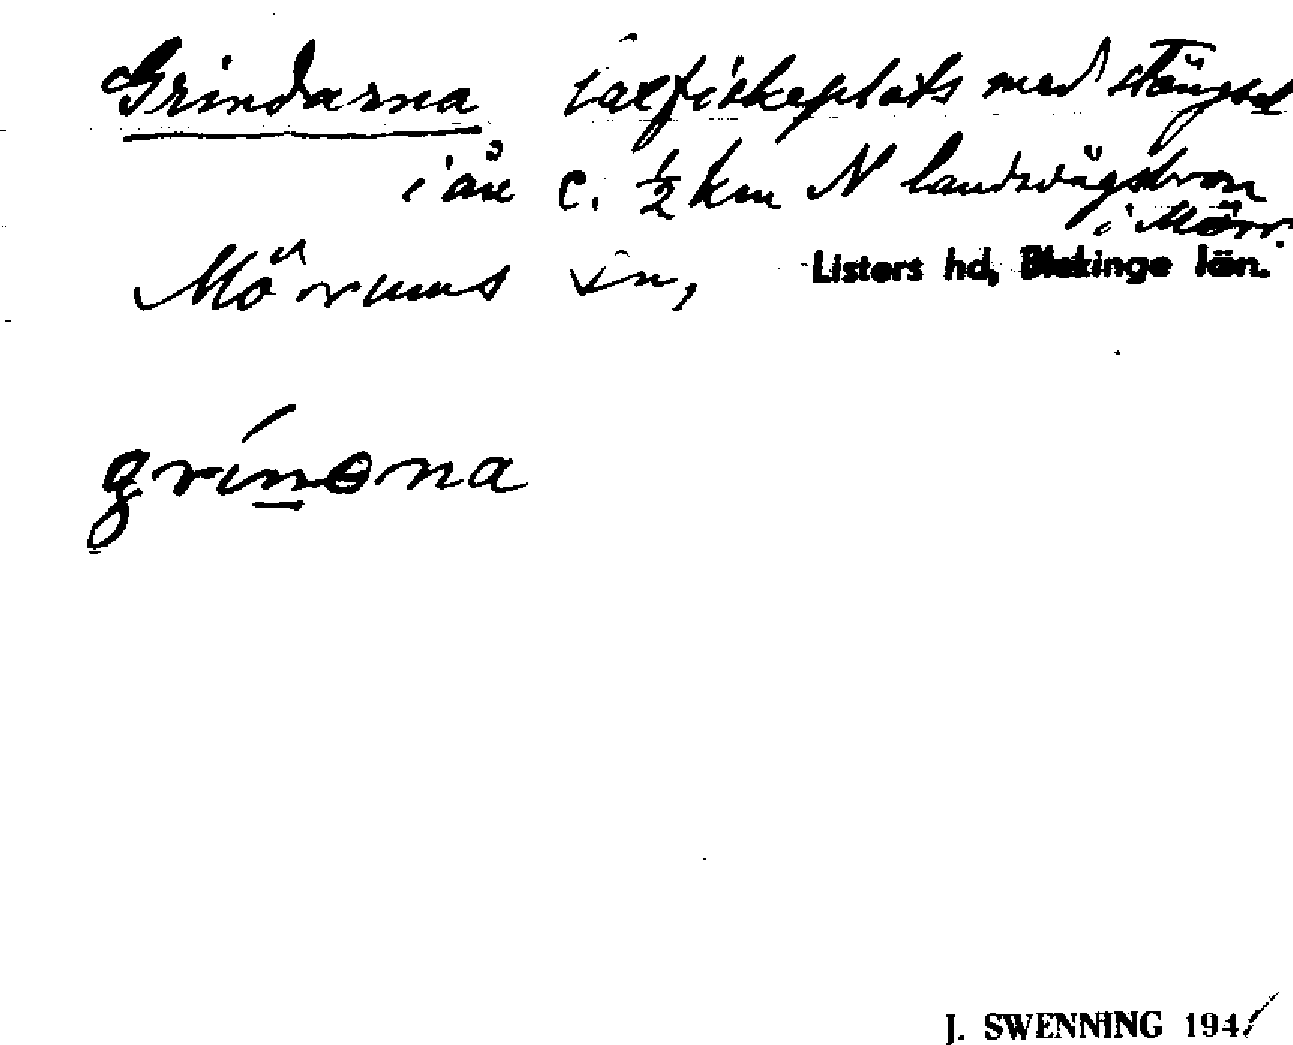 Grindarna laxfiskeplats med stängsel
i ån c. ½ km N landsvägsbron
i Mörr.
Mörrums sn, Listers hd, Blekinge län.
grínəna
J. SWENNING 194